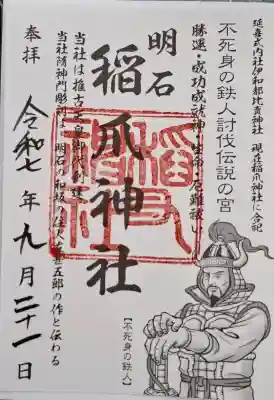 延喜式内社伊和都比賣神社 現在稲爪神社に合祀
不死身の鉄人討伐伝説の宮
勝運・成功成就・神
生命・厄難祓い
明石
稲爪神社
当社は推古天皇御代創建
当社随神門彫刻は明石の和坂の住人
五郎の作と伝わる
奉拝
令和七年九月二十一日
【不死身の鉄人】